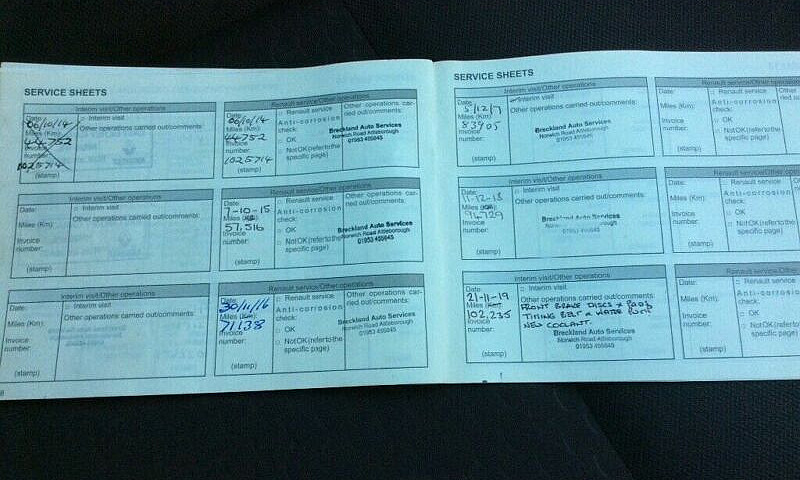 SERVICE SHEETS
Interim visit/Other operations
Date:
06/10/14
Miles (Km):
44752
Invoice
number:
1025714
(stamp)
Interim visit
Other operations carried out/comments:
Renault service/Other operations
Date:
06/10/14
Miles (Km):
44752
Invoice
number:
1025714
Renault service
Anti-corrosion
check:
OK
NotOK(refer to the
specific page)
Other operations car-
ried out/comments:
Breckland Auto Services
Norwich Road Attleborough
01953 455645
Interim visit/Other operations
Date:
Miles (Km):
Invoice
number:
(stamp)
Interim visit
Other operations carried out/comments:
Renault service/Other operations
Date:
7-10-15
Miles (Km):
57,516
Invoice
number:
Renault service
Anti-corrosion
check:
OK
NotOK(refer to the
specific page)
Other operations car-
ried out/comments:
Breckland Auto Services
Norwich Road Attleborough
01953 455645
Interim visit/Other operations
Date:
Miles (Km):
Invoice
number:
(stamp)
Interim visit
Other operations carried out/comments:
Renault service/Other operations
Date:
30/11/16
Miles (Km):
71138
Invoice
number:
(stamp)
Renault service
Anti-corrosion
check:
OK
NotOK(refer to the
specific page)
Other operations car-
ried out/comments:
Breckland Auto Services
Norwich Road Attleborough
01953 455645
SERVICE SHEETS
Interim visit/Other operations
Date:
5/12/17
Miles (Km):
83905
Invoice
number:
(stamp)
Interim visit
Other operations carried out/comments:
Breckland Auto Services
Norwich Road Attleborough
01953 455645
Renault service/Other
Date:
Miles (Km):
Invoice
number:
(stamp)
Renault service
Anti-corrosion
check:
OK
NotOK(refer to the
specific page)
Interim visit/Other operations
Date:
11-12-18
Miles (Km):
96729
Invoice
number:
(stamp)
Interim visit
Other operations carried out/comments:
Breckland Auto Services
Renault service/Other
Date:
Miles (Km):
Invoice
number:
(stamp)
Renault service
Anti-corrosion
check:
OK
NotOK(refer to the
specific page)
Interim visit/Other operations
Date:
21-11-19
Miles (Km):
102,235
Invoice
number:
(stamp)
Interim visit
Other operations carried out/comments:
FRONT BRAKE DISCS + PADS
TIMING BELT & WATER PUMP
NEW COOLANT.
Breckland Auto Services
Norwich Road Attleborough
01953 455645
Renault service/Other
Date:
Miles (Km):
Invoice
number:
(stamp)
Renault service
Anti-corrosion
check:
OK
NotOK(refer to the
specific page)